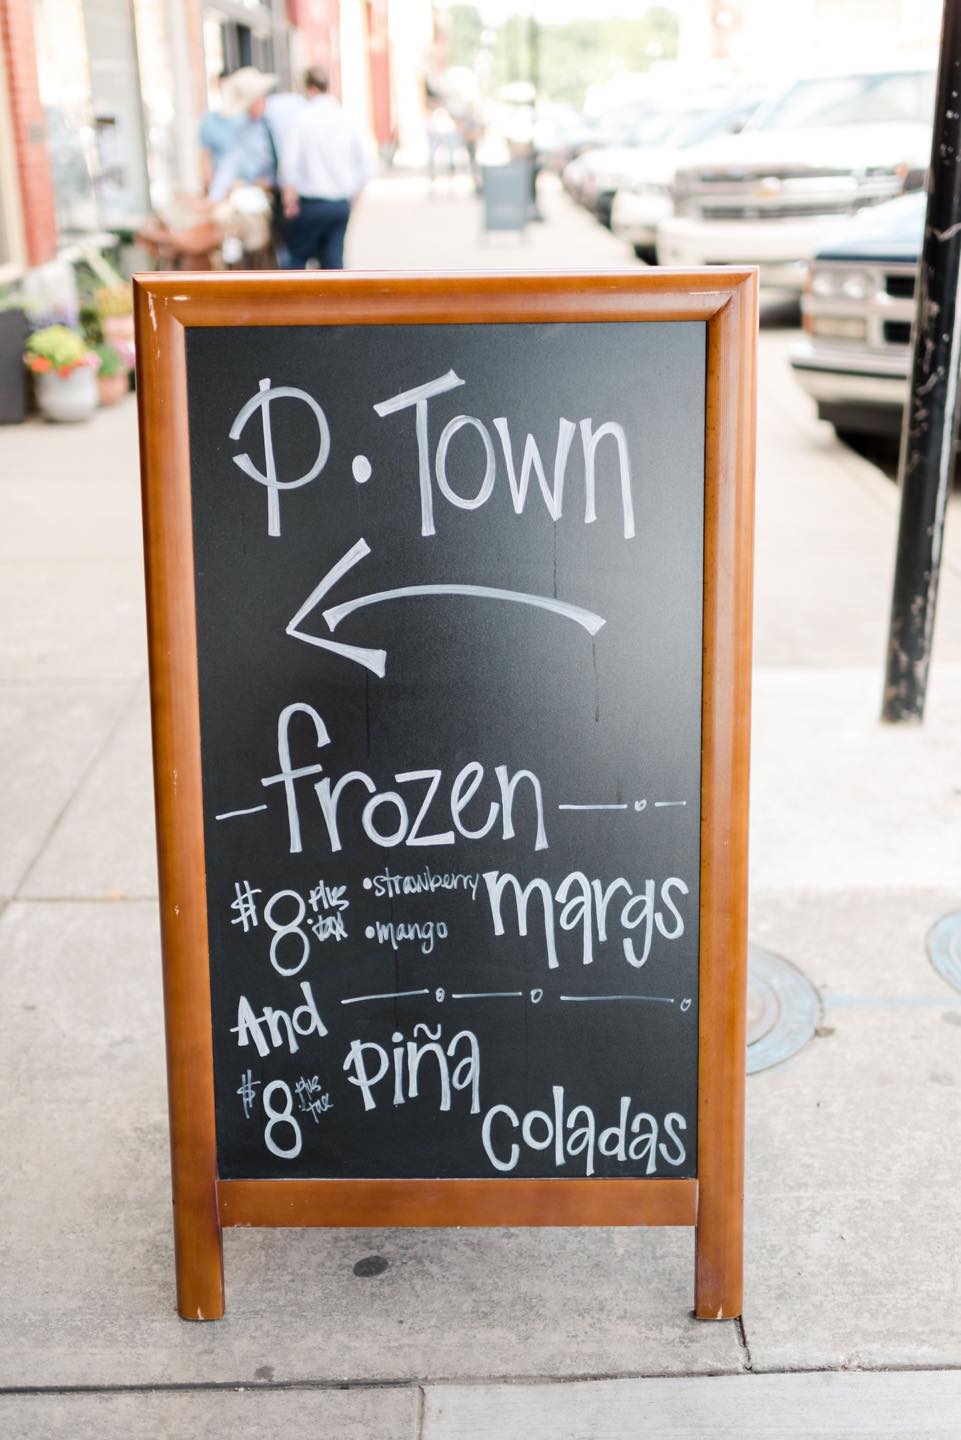 P • Town
frozen
$8 plus tax • strawberry • mango margs
And
$8 plus tax piña coladas